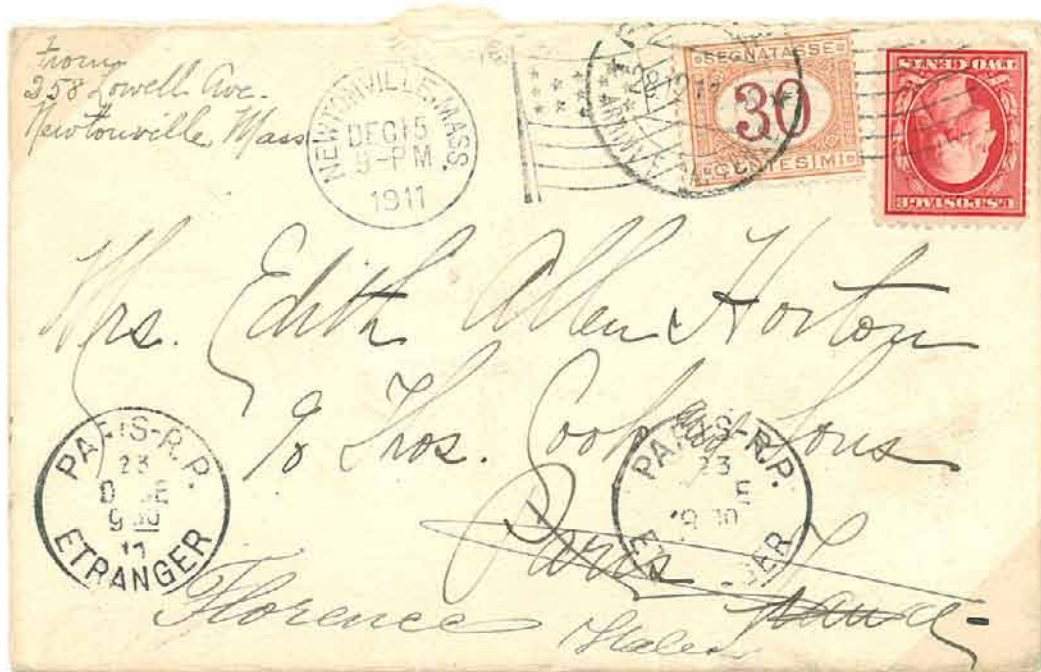 From
258 Lowell Ave.
Newtonville Mass
NEWTONVILLE, MASS.
DEC 15
9-PM
1911
SEGNATASSE
30
CENTESIMI
TWO CENTS
U.S. POSTAGE
Mrs. Edith Allen Horton
c/o Thos. Cook & Sons
Paris
France
PARIS-R.P.
23
E
9 30
11
ETRANGER
PARIS-R.P.
23
E
9 30
Florence
Italie